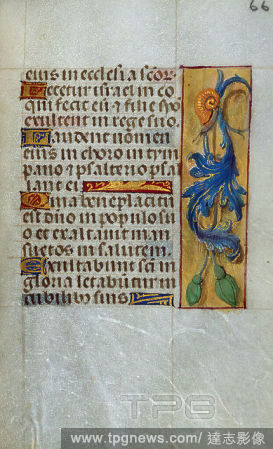 66
eius in ecclesia scor
Letetur isrl in eo
qui fecit eū & filie syō
exultent in rege suo.
Laudent nomen
eius in choro in tym
pano & psalterio psal
lant ei
Quia beneplacitū
est dño in populo su
o et exaltauit man
suetos in salutem.
Exultabunt sci in
gloria letabūtur in
cubilibus suis
TPG
www.tpgnews.com/達志影像